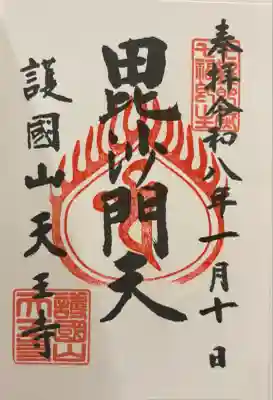 奉拝令和八年一月十日
毘沙門天
護國山天王寺